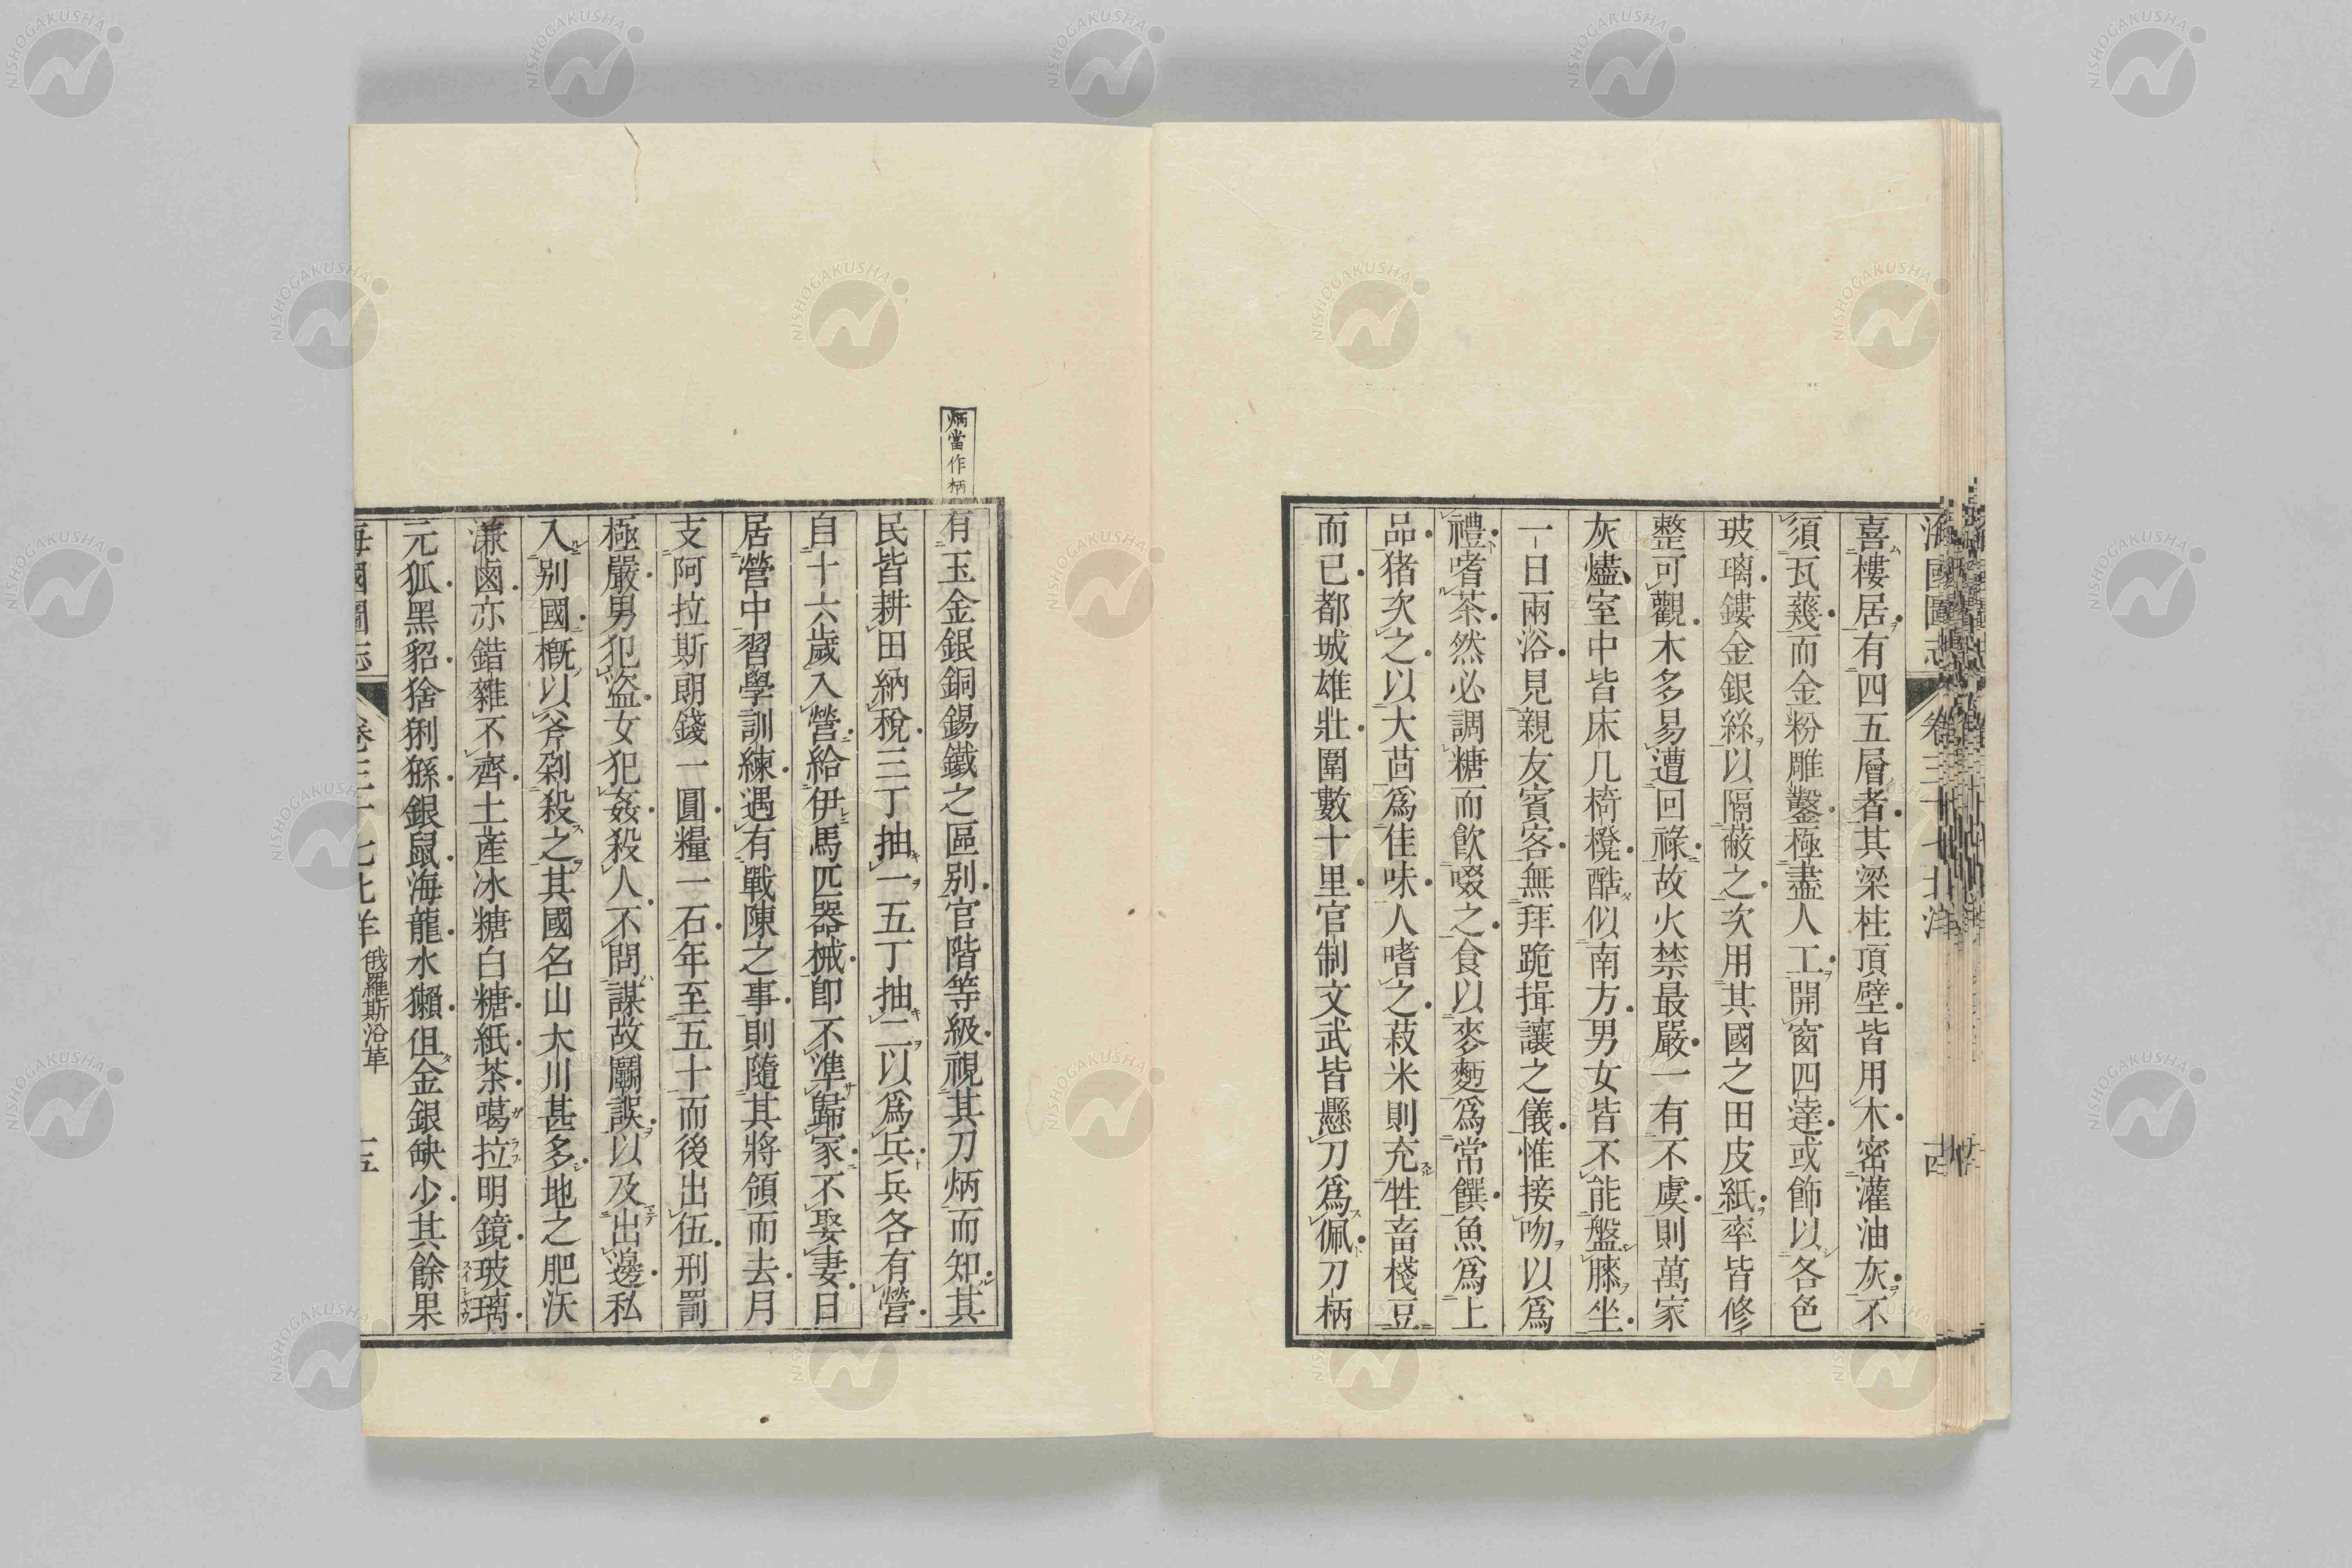 海國圖志 卷三十七北洋 十四
喜樓居有四五層者其梁柱頂壁皆用木密灌油灰不
須瓦蔑而金粉雕鑿極盡人工開窗四達或飾以各色
玻璃鏤金銀絲以隔蔽之次用其國之田皮紙率皆修
整可觀木多易遭回祿故火禁最嚴一有不虞則萬家
灰燼室中皆床几椅櫈酷似南方男女皆不能盤膝坐
一日兩浴見親友賓客無拜跪揖讓之儀惟接吻以爲
禮嗜茶然必調糖而飲啜之食以麥麪爲常饌魚爲上
品猪次之以大茴爲佳味人嗜之菽米則充牲畜棧豆
而已都城雄壯圍數十里官制文武皆懸刀爲佩刀柄
炳當作柄
有玉金銀銅錫鐵之區别官階等級視其刀炳而知其
民皆耕田納稅三丁抽一五丁抽二以爲兵兵各有營
自十六歲入營給伊馬匹器械卽不準歸家不娶妻日
居營中習學訓練遇有戰陳之事則隨其將領而去月
支阿拉斯朗錢一圓糧一石年至五十而後出伍刑罰
極嚴男犯盜女犯姦殺人不問謀故鬭誤以及出邊私
入别國概以斧剁殺之其國名山大川甚多地之肥沃
濂鹵亦錯雜不齊土產冰糖白糖紙茶噶拉明鏡玻璃
元狐黑貂猞猁猻銀鼠海龍水獺但金銀缺少其餘果
海國圖志 卷三十七北洋 俄羅斯沿革 十五
NISHOGAKUSHA